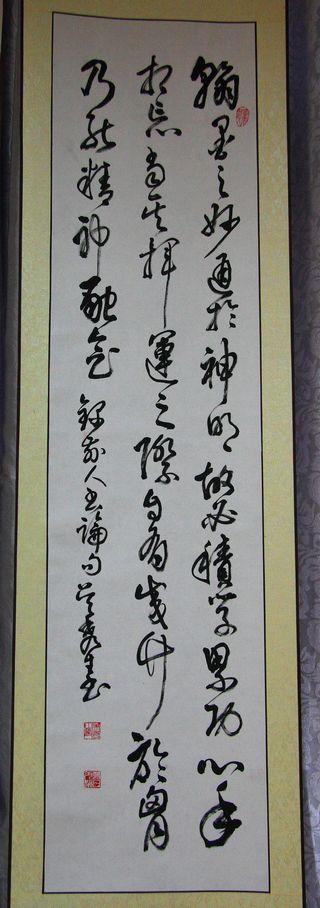 翰墨之妙通於神明故必積學累功心手
相忘當其揮運之際自有成竹於胸
乃能精神融會 錄前人書論句 書